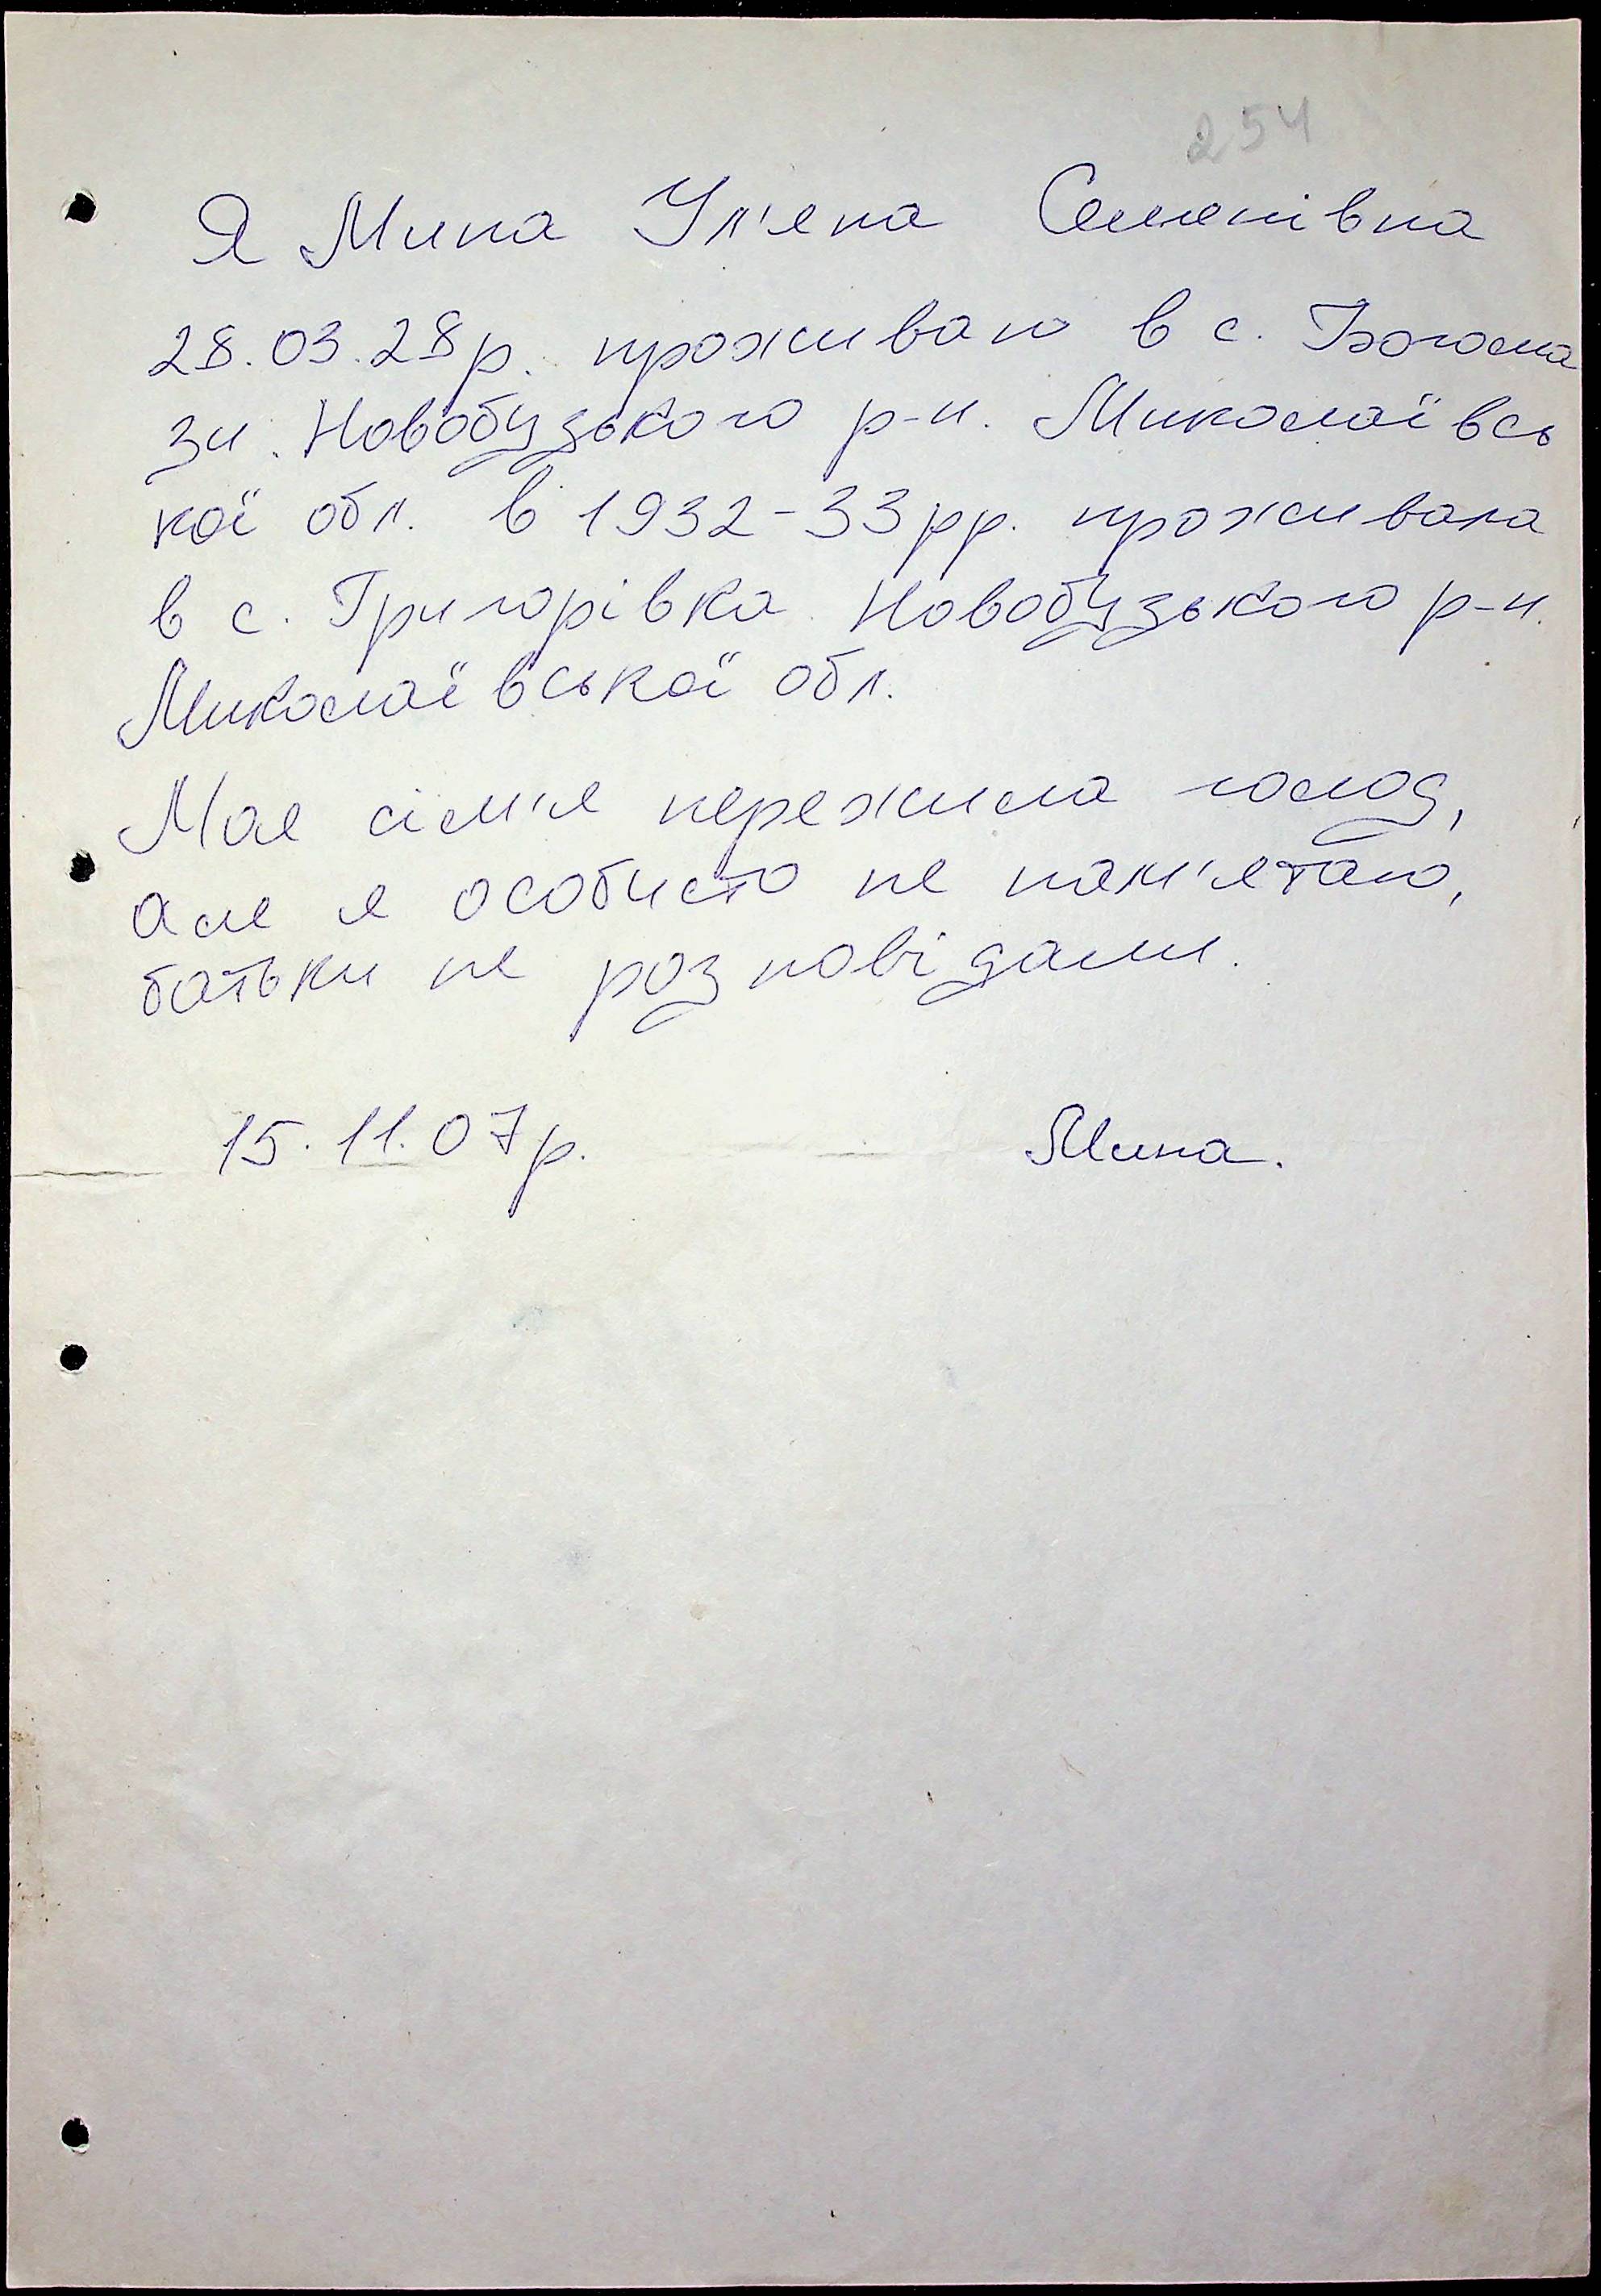 254
Я Мина Ул'яна Семенівна
28.03.28р. проживаю в с. Богома
зи. Новобузького р-н. Миколаївсь
кої обл. в 1932-33рр. проживала
в с. Григорівка Новобузького р-н.
Миколаївської обл.
Моя сім'я пережила голод,
але я особисто не пам'ятаю,
батьки не розповідали.
15.11.07р. Мина.